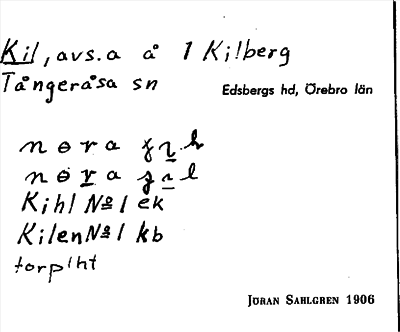 Kil, avs. a å 1 Kilberg
Tångeråsa sn Edsbergs hd, Örebro län
nɵra
nɵra
Kihl No 1 ek
Kilen No 1 kb
torp lht
JÖRAN SAHLGREN 1906